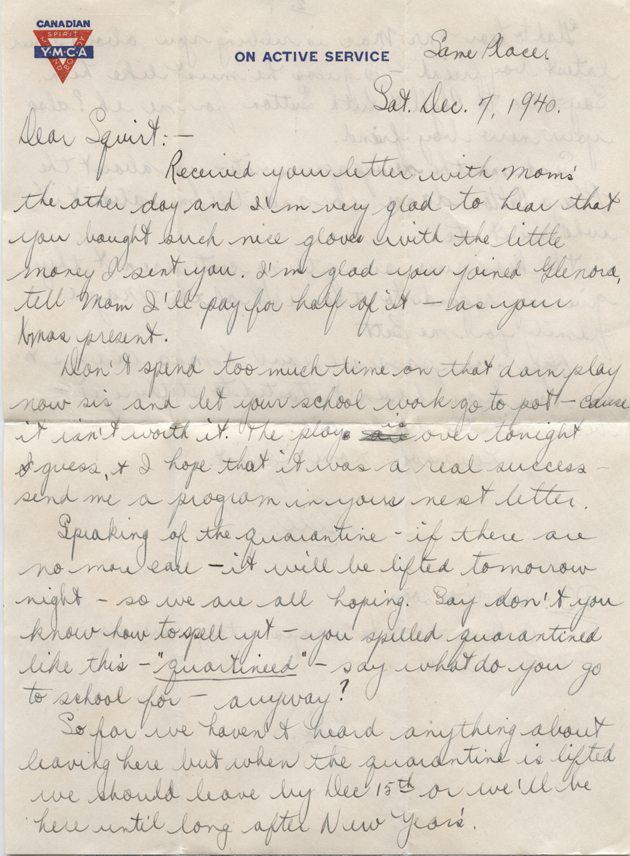 CANADIAN
SPIRIT
Y·M·C·A
ON ACTIVE SERVICE
Same Place,
Sat. Dec. 7, 1940.
Dear Squirt:—
Received your letter with Moms'
the other day and I'm very glad to hear that
you bought such nice gloves with the little
money I sent you. I'm glad you joined Glenora,
tell Mom I'll pay for half of it — as your
Xmas present.
Don't spend too much time on that darn play
now sis, and let your school work go to pot — cause
it isn't worth it. The play is over tonight
I guess, & I hope that it was a real success —
send me a program in yours next letter.
Speaking of the quarantine - if there are
no more — it will be lifted tomorrow
night — so we are all hoping. Say don't you
know how to spell yet — you spelled quarantined
like this — "quartineed" — say what do you go
to school for — anyway?
So far we haven't heard anything about
leaving here but when the quarantine is lifted
we should leave by Dec 15th or we'll be
here until long after New Years'.